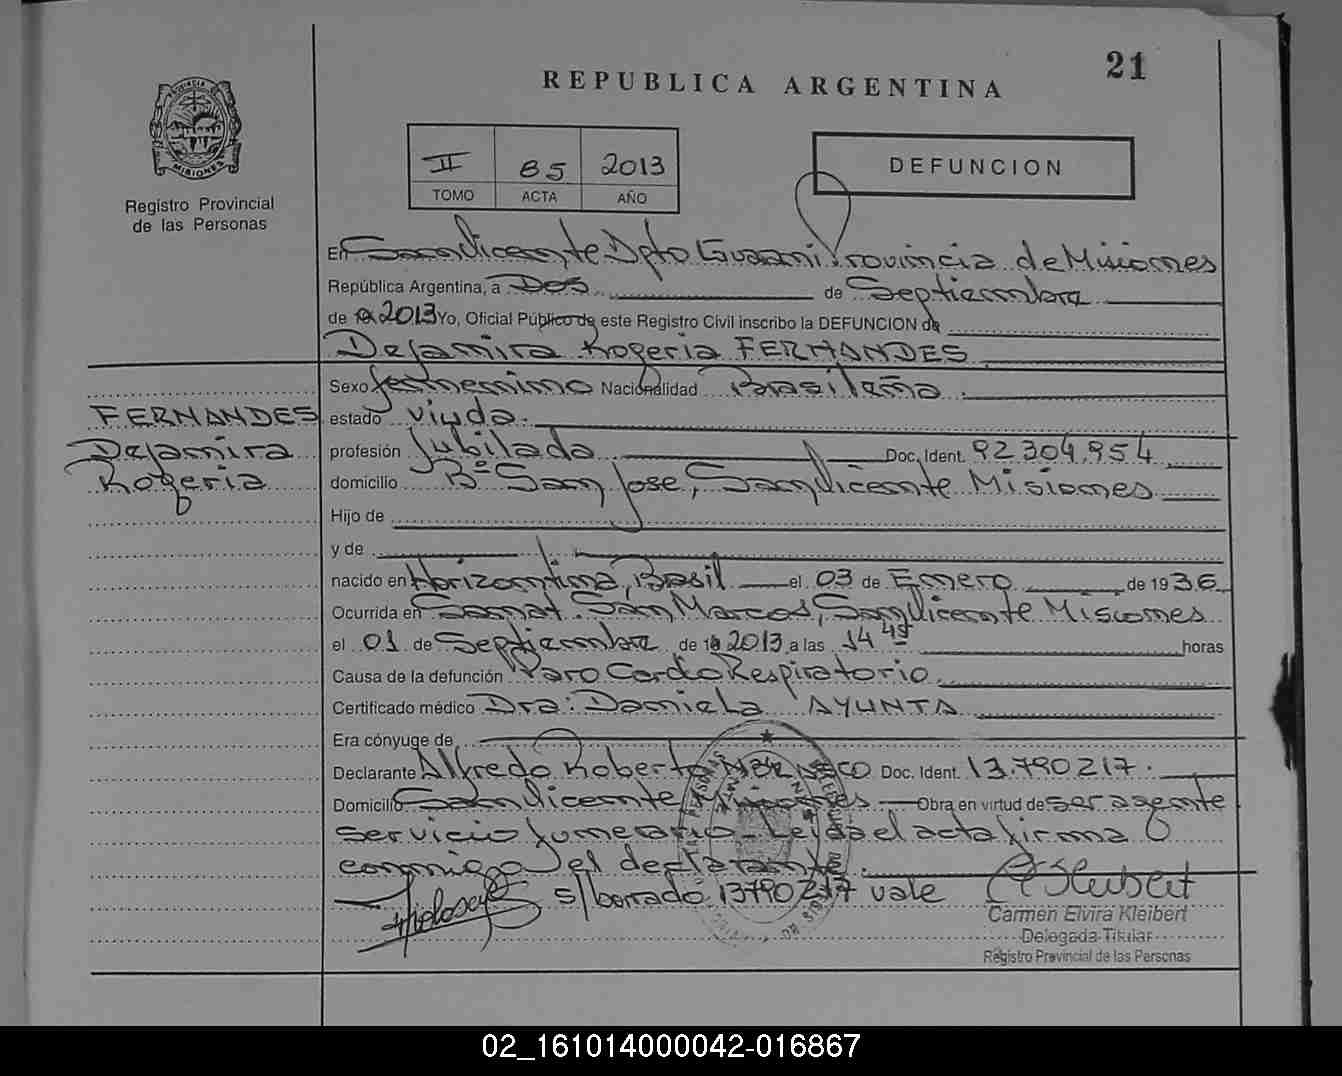 21
REPUBLICA ARGENTINA
PROVINCIA DE
MISIONES
Registro Provincial
de las Personas
II 85 2013
TOMO ACTA AÑO
DEFUNCION
En San Vicente Dpto Guarani Provincia de Misiones
República Argentina, a Dos de Septiembre
de 2013 Yo, Oficial Público de este Registro Civil inscribo la DEFUNCION de
Dejamira Rogeria FERNANDES
Sexo femenino Nacionalidad Brasileña
FERNANDES
Dejamira
Rogeria
estado viuda.
profesión Jubilada Doc. Ident. 92.304.954
domicilio Bº San Jose, San Vicente Misiones
Hijo de
y de
nacido en Horizontina, Brasil el 03 de Enero de 1936
Ocurrida en Sanat. San Marcos, San Vicente Misiones
el 01 de Septiembre de 2013 a las 14 45 horas
Causa de la defunción Paro Cardo Respiratorio
Certificado médico Dra: Daniela AYUNTA
Era cónyuge de
Declarante Alfredo Roberto Doc. Ident. 13.790217.
Domicilio San Vicente Misiones Obra en virtud de ser agente
servicio funerario - Leida el acta firma
conmigo el declarante
s/borrado 13790217 vale
Carmen Elvira Kleibert
Delegada Titular
Registro Provincial de las Personas
02_161014000042-016867